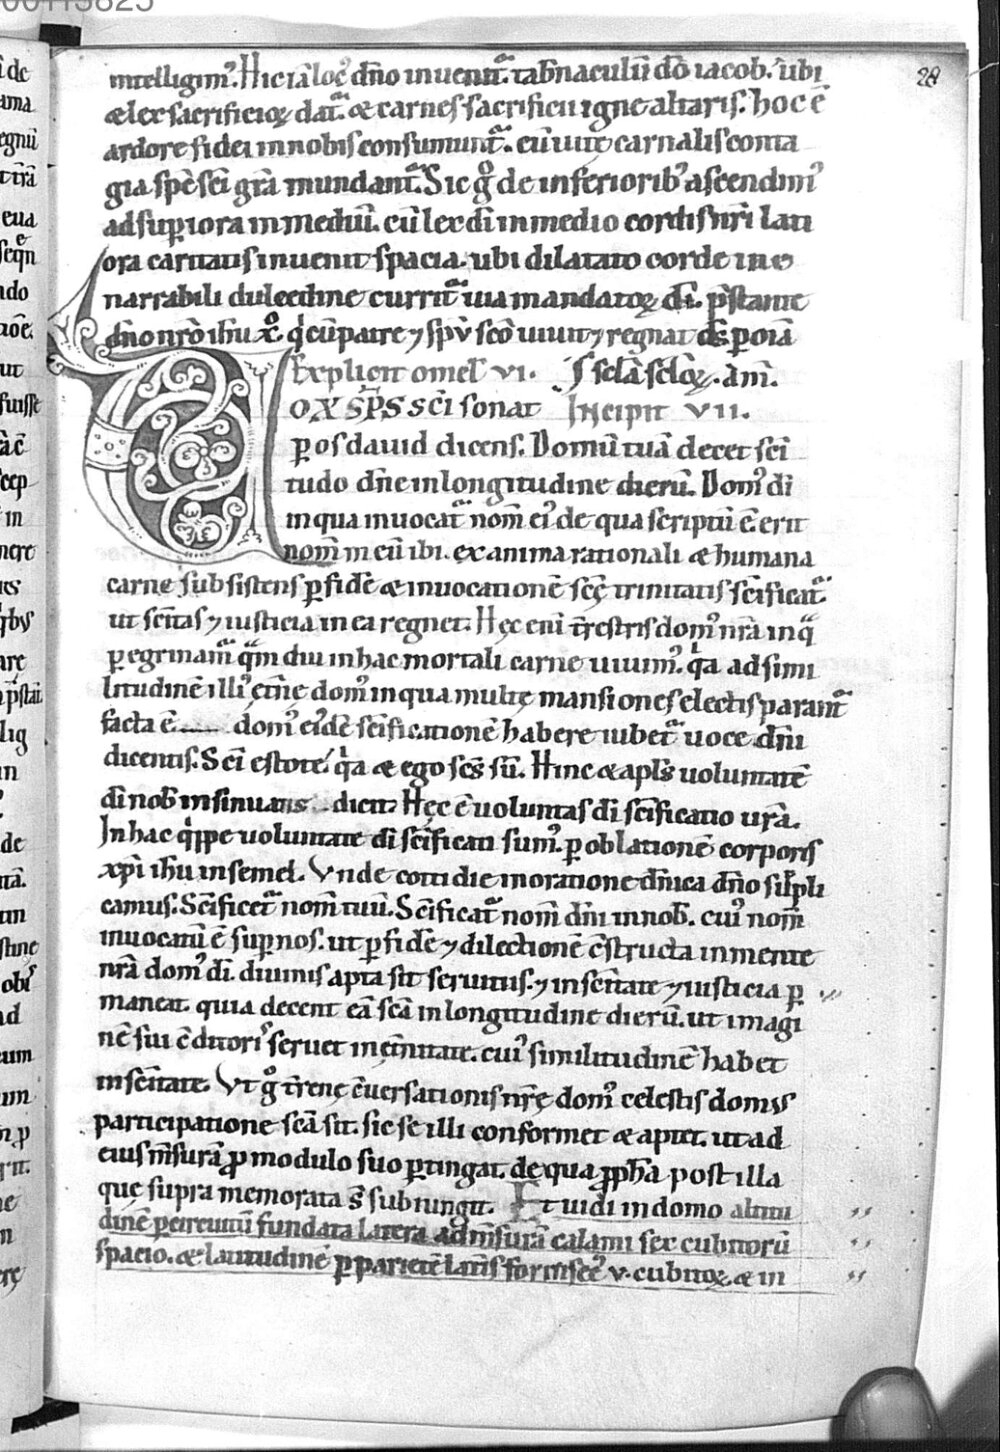 28
intelligim᷒. Hic iā loc᷒ dn̄o inuenit᷑. tab̄naculū dō iacob. ubi
& lex sacrificioꝝ dat᷑. & carnes sacrificii igne altaris. hoc ē
ardore fidei in nobis consumunt᷑. cū uitę carnalis conta
gia sp̄c sc̄i gr̄a mundant᷑. Sic gͦ de inferiorib᷒ ascendim᷒
ad supiora in mediū. cū lex dī in medio cordis nr̄i lati
ora caritatis inuenit spacia. ubi dilatato corde ine
narrabili dulcedine currit᷑ uia mandatoꝝ dī. p̄stante
dn̄o nr̄o ih̄u xͦ. qͥ cū patre ⁊ sp̄u sc̄o uiuit ⁊ regnat d̄s ꝑ om̄ia
Explicit omel̄ VI. sc̄la sc̄loꝝ. am̄.
OX SP̄S Sc̄i sonat Incipit VII.
ꝑ os dauid dicens. Domū tuā decet sc̄i
tudo dn̄e in longitudine dierū. Dom᷒ dī
in qua inuocat᷑ nom̄ ei᷒ de qua scriptū ē erit
nom̄ meū ibi. ex anima rationali & humana
carne subsistens ꝑ fidē & inuocationē sc̄ę trinitatis sc̄ificat᷑.
ut sc̄itas ⁊ iusticia in ea regnet. Hęc eni t̄restris dom᷒ nr̄a in qͣ
ꝑegrinam᷑ qͣm diu in hac mortali carne uiuim᷒. qͥa ad simi
litudinē illi᷒ et̄nę dom᷒ in qua multę mansiones electis parant᷑
facta ē dom᷒ ei᷒dē sc̄ificationē habere iubet᷑ uoce dn̄i
dicentis. Sc̄i estote. qͥa & ego sc̄s sū. Hinc & apl̄s uoluntatē
dī nob̄ insinuans dicit. Hęc ē uoluntas dī sc̄ificatio ur̄a.
In hac qͥppe uoluntate dī sc̄ificati sum᷒. ꝑ oblationē corporis
xp̄i ih̄u in semel. Vnde cottidie in oratione dn̄ica dn̄o suppli
camus. Sc̄ificet᷑ nom̄ tuū. Sc̄ificat᷑ nom̄ dn̄i in nob̄. cui᷒ nom̄
inuocatū ē sup nos. ut ꝑ fidē ⁊ dilectionē c̄structa in mente
nr̄a dom᷒ dī. diuinis apta sit seruitiis. ⁊ in sc̄itate ⁊ iusticia ꝑ
maneat. quia decent eā sc̄a in longitudine dierū. ut imagi
nē sui c̄ditoris seruet in et̄nitate. cui᷒ similitudinē habet
in sc̄itate. Vt gͦ t̄renę c̄uersationis nr̄ę dom᷒ celestis domus
participatione sc̄a sit. sic se illi conformet & aptet. ut ad
eius m̄surā ꝓ modulo suo ꝑtingat. de qua ꝓph̄a post illa
quę supra memorata s̄t subiungit. Et uidi in domo altitu
dinē ꝑ circuitū fundata latera ad m̄surā calami sex cubitorū
spacio. & latitudinē ꝑ parietē lat̄is forinsec᷒ v. cubitoꝝ & in